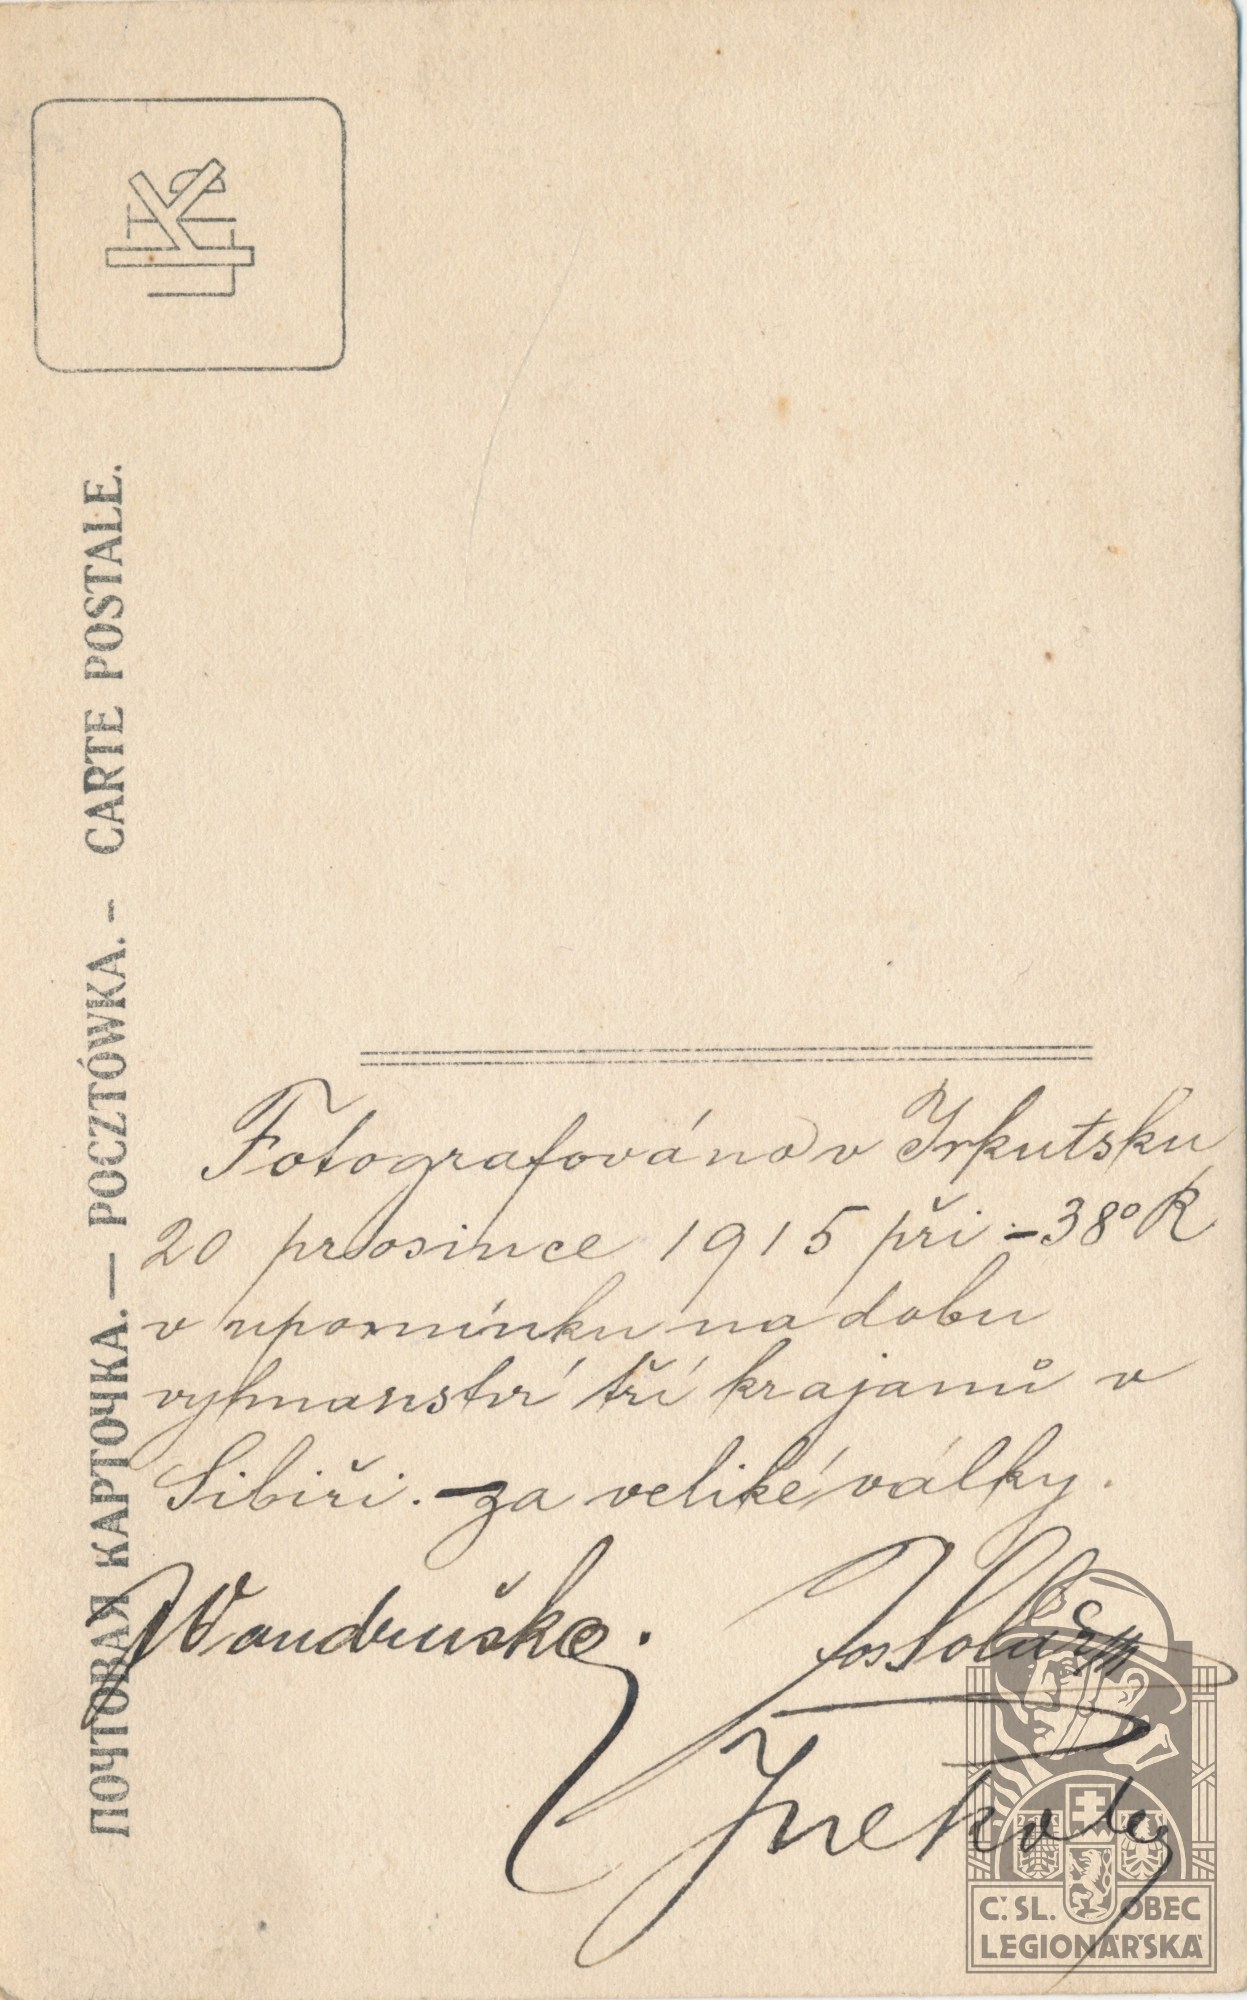 ПОЧТОВАЯ КАРТОЧКА. — POCZTÓWKA. – CARTE POSTALE.
Fotografováno v Irkutsku
20 prosince 1915 při -38° R
v upomínku na dobu
vyhnanství tří krajanů v
Sibiři. - za veliké války.
Wandruška. Jos Solař
C.SL. OBEC
LEGIONÁŘSKÁ